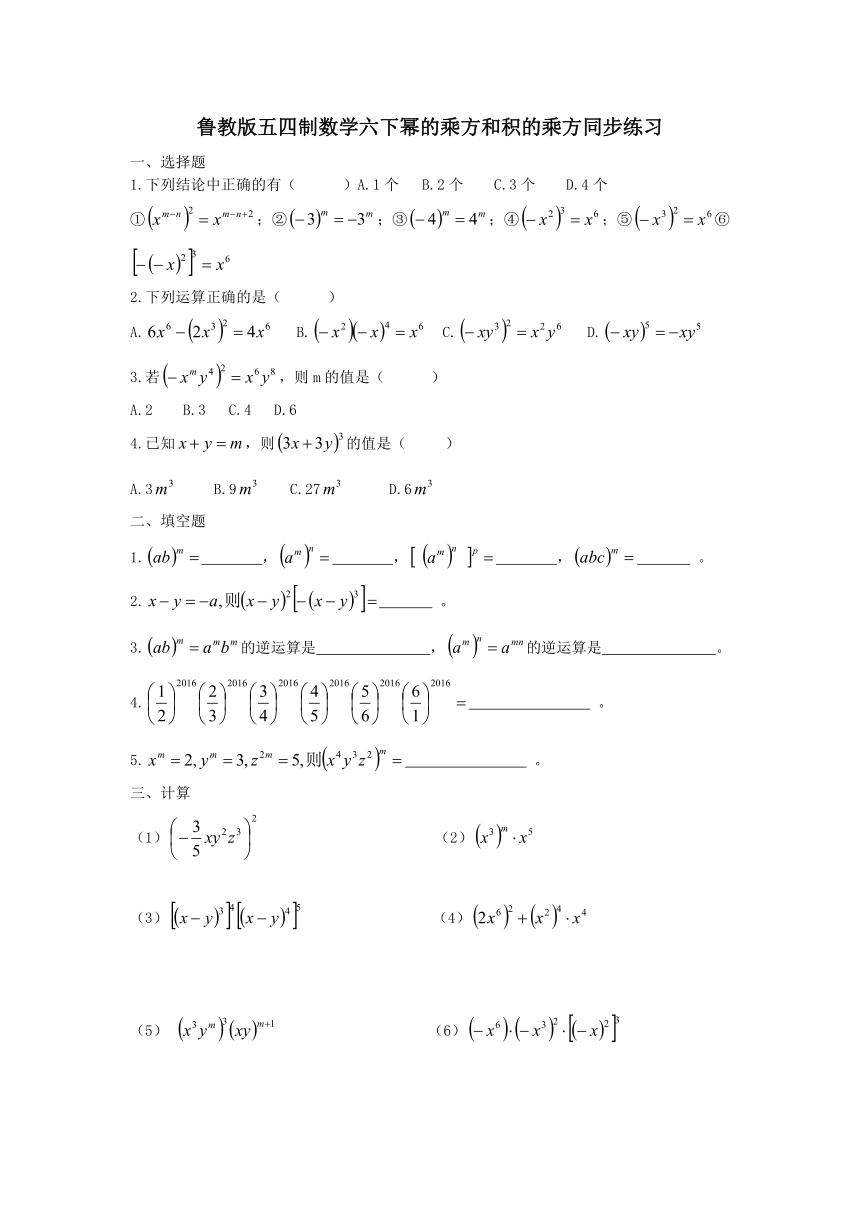 鲁教版五四制数学六下幂的乘方和积的乘方同步练习
一、选择题
1.下列结论中正确的有（ ）A.1个 B.2个 C.3个 D.4个
①(x^{m-n})^2=x^{m-n+2};②(-3)^m=-3^m;③(-4)^m=4^m;④(-x^2)^3=x^6;⑤(-x^3)^2=x^6⑥
[-(-x)^2]^3=x^6
2.下列运算正确的是（ ）
A.6x^6-(2x^3)^2=4x^6 B.(-x^2)(-x)^4=x^6 C.(-xy^3)^2=x^2y^6 D.(-xy)^5=-xy^5
3.若(-x^m y^4)^2=x^6y^8,则m的值是（ ）
A.2 B.3 C.4 D.6
4.已知x+y=m,则(3x+3y)^3的值是（ ）
A.3m^3 B.9m^3 C.27m^3 D.6m^3
二、填空题
1.(ab)^m=______,(a^m)^n=______,[(a^m)^n]^p=______,(abc)^m=______。
2.x-y=-a,则(x-y)^2[-(x-y)^3]=______。
3.(ab)^m=a^m b^m的逆运算是______,(a^m)^n=a^{mn}的逆运算是______。
4.(1/2)^{2016}(2/3)^{2016}(3/4)^{2016}(4/5)^{2016}(5/6)^{2016}(6/1)^{2016}=______。
5.x^m=2,y^m=3,z^{2m}=5,则(x^4y^3z^2)^m=______。
三、计算
（1）(-3/5 xy^2z^3)^2 （2）(x^3)^m·x^5
（3）[(x-y)^3]^4[(x-y)^4]^5 （4）(2x^6)^2+(x^2)^4·x^4
（5）(x^3y^m)^3(xy)^{m+1} （6）(-x^6)·(-x^3)^2·[(-x)^2]^3